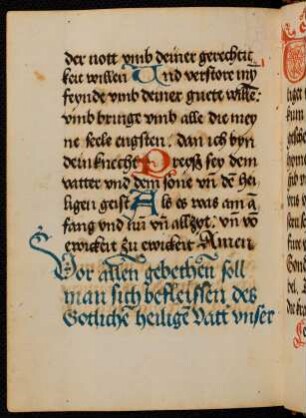 der nott vmb deiner gerechtic
keit willen Und verstore my
feynde vmb deiner guete wille:
vmb bringe vmb alle die mey
ne seele engsten. dan ich byn
dein knecht Preysz sey dem
vatter vnd dem sone vn̄ dē hei
ligen geist Als es was am ā
fang vnd nū vn̄ allzyt. vn̄ vō
ewickeit zu ewickeit Amen
Vor allen gebethen soll
man sich befleissen des
Gotlichē heiligē Vatt vnser